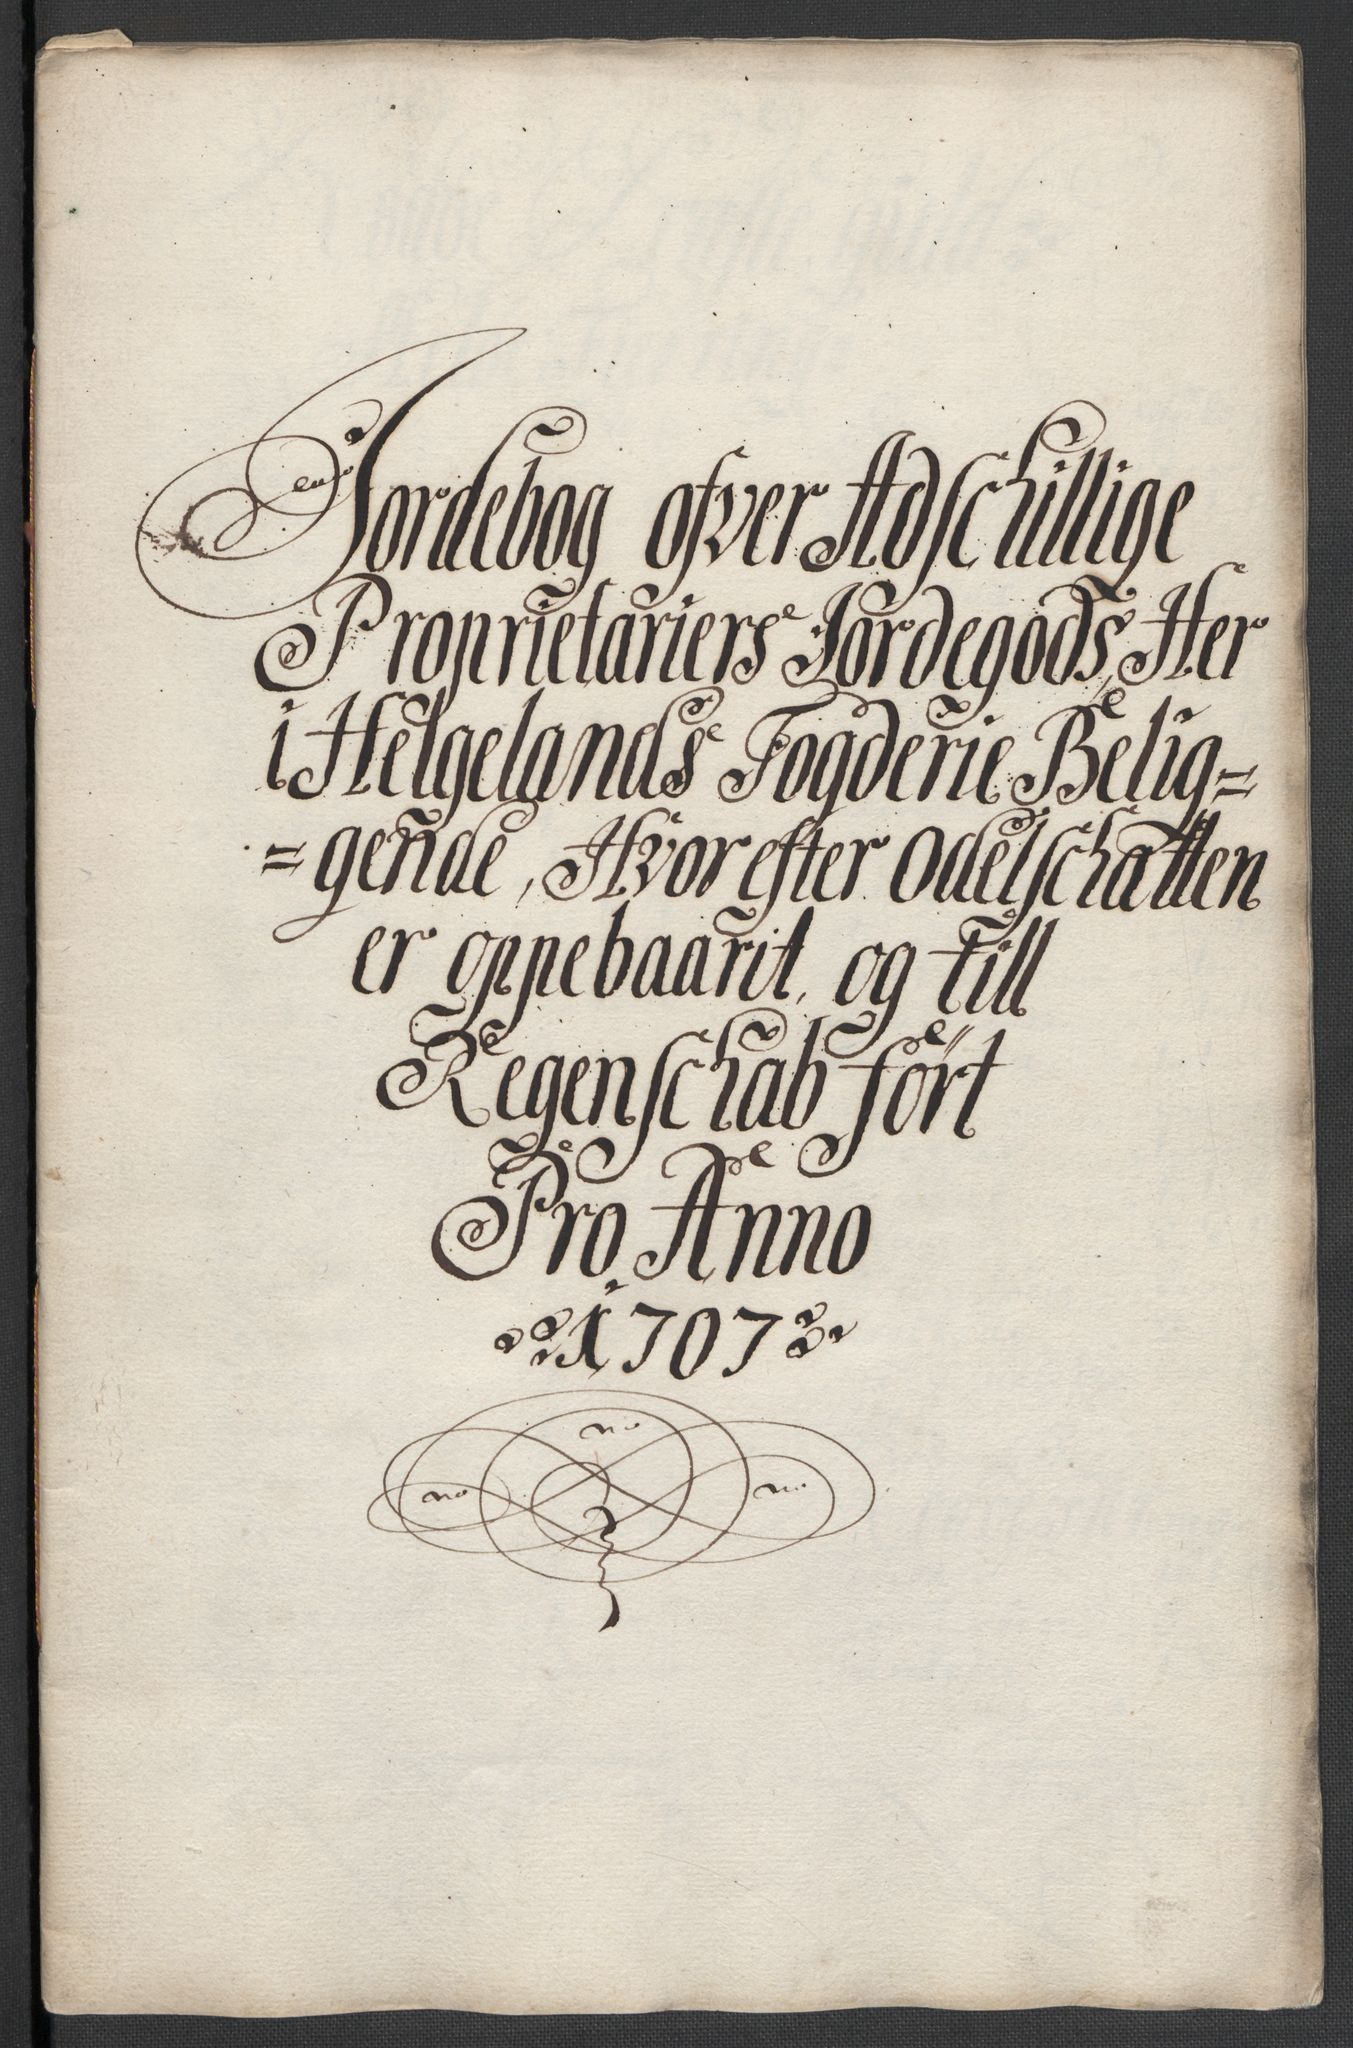 Jordebog ofver Adschillige
Proprietariers Jordegods, Her
i Helgelands Fogderie Belig=
=gende, Hvorefter Odelschatten
er oppebaarit, og till
Regenschab fört
Pro Anno
1707
no
no no